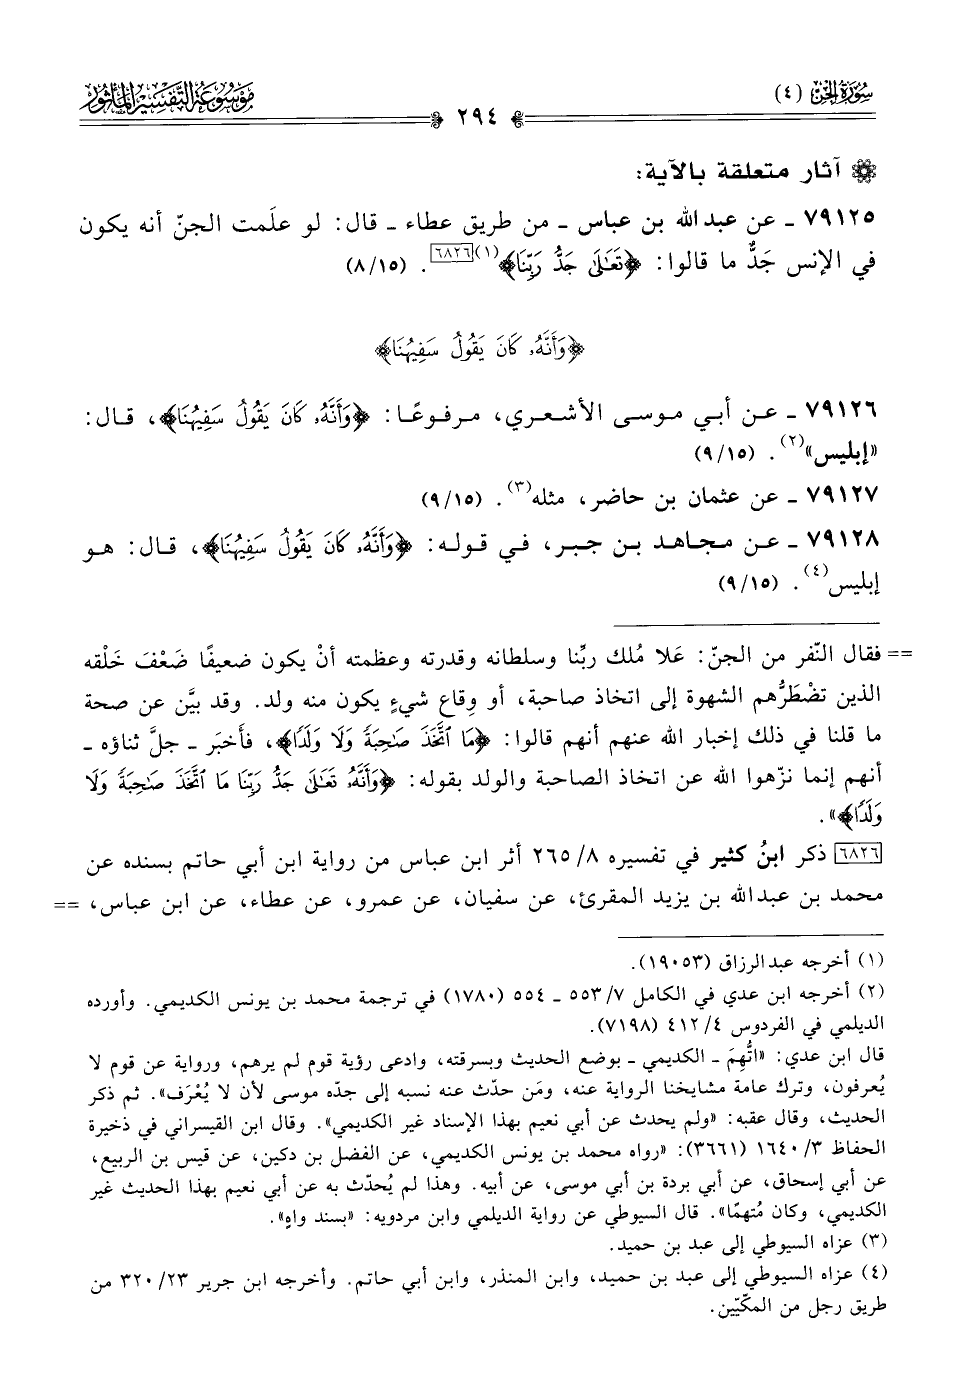 سُورَةُ الجِنّ (٤)
٢٩٤
مَوْسُوعَة التَّفْسِير المَأْثُور
آثار متعلقة بالآية:
٧٩١٢٥ ـ عن عبد الله بن عباس ـ من طريق عطاء ـ قال: لو علَمت الجنّ أنه يكون
في الإنس جَدٌّ ما قالوا: ﴿تَعَٰلَىٰ جَدُّ رَبِّنَا﴾(١)[٦٨٢٦]. (١٥/٨)
﴿وَأَنَّهُۥ كَانَ يَقُولُ سَفِيهُنَا﴾
٧٩١٢٦ ـ عن أبي موسى الأشعري، مرفوعًا: ﴿وَأَنَّهُۥ كَانَ يَقُولُ سَفِيهُنَا﴾، قال:
«إبليس»(٢). (١٥/٩)
٧٩١٢٧ ـ عن عثمان بن حاضر، مثله(٣). (١٥/٩)
٧٩١٢٨ ـ عن مجاهد بن جبر، في قوله: ﴿وَأَنَّهُۥ كَانَ يَقُولُ سَفِيهُنَا﴾، قال: هو
إبليس(٤). (١٥/٩)
== فقال النّفر من الجنّ: عَلا مُلك ربِّنا وسلطانه وقدرته وعظمته أنْ يكون ضعيفًا ضَعْفَ خَلْقه
الذين تضْطَرُّهم الشهوة إلى اتخاذ صاحبة، أو وِقاع شيءٍ يكون منه ولد. وقد بيَّن عن صحة
ما قلنا في ذلك إخبار الله عنهم أنهم قالوا: ﴿مَا ٱتَّخَذَ صَٰحِبَةً وَلَا وَلَدًا﴾، فأخبَر ـ جلَّ ثناؤه ـ
أنهم إنما نزّهوا الله عن اتخاذ الصاحبة والولد بقوله: ﴿وَأَنَّهُۥ تَعَٰلَىٰ جَدُّ رَبِّنَا مَا ٱتَّخَذَ صَٰحِبَةً وَلَا
وَلَدًا﴾».
[٦٨٢٦] ذكر ابنُ كثير في تفسيره ٨/ ٢٦٥ أثر ابن عباس من رواية ابن أبي حاتم بسنده عن
محمد بن عبد الله بن يزيد المقرئ، عن سفيان، عن عمرو، عن عطاء، عن ابن عباس، ==
(١) أخرجه عبد الرزاق (١٩٠٥٣).
(٢) أخرجه ابن عدي في الكامل ٧/ ٥٥٣ ـ ٥٥٤ (١٧٨٠) في ترجمة محمد بن يونس الكديمي. وأورده
الديلمي في الفردوس ٤/ ٤١٢ (٧١٩٨).
قال ابن عدي: «اتُّهِمَ ـ الكديمي ـ بوضع الحديث وبسرقته، وادعى رؤية قوم لم يرهم، ورواية عن قوم لا
يُعرفون، وترك عامة مشايخنا الرواية عنه، ومَن حدّث عنه نسبه إلى جدّه موسى لأن لا يُعْرَف». ثم ذكر
الحديث، وقال عقبه: «ولم يحدث عن أبي نعيم بهذا الإسناد غير الكديمي». وقال ابن القيسراني في ذخيرة
الحفاظ ٣/ ١٦٤٠ (٣٦٦١): «رواه محمد بن يونس الكديمي، عن الفضل بن دكين، عن قيس بن الربيع،
عن أبي إسحاق، عن أبي بردة بن أبي موسى، عن أبيه. وهذا لم يُحدّث به عن أبي نعيم بهذا الحديث غير
الكديمي، وكان مُتهمًا». قال السيوطي عن رواية الديلمي وابن مردويه: «بسند واهٍ».
(٣) عزاه السيوطي إلى عبد بن حميد.
(٤) عزاه السيوطي إلى عبد بن حميد، وابن المنذر، وابن أبي حاتم. وأخرجه ابن جرير ٢٣/ ٣٢٠ من
طريق رجل من المكّيّين.